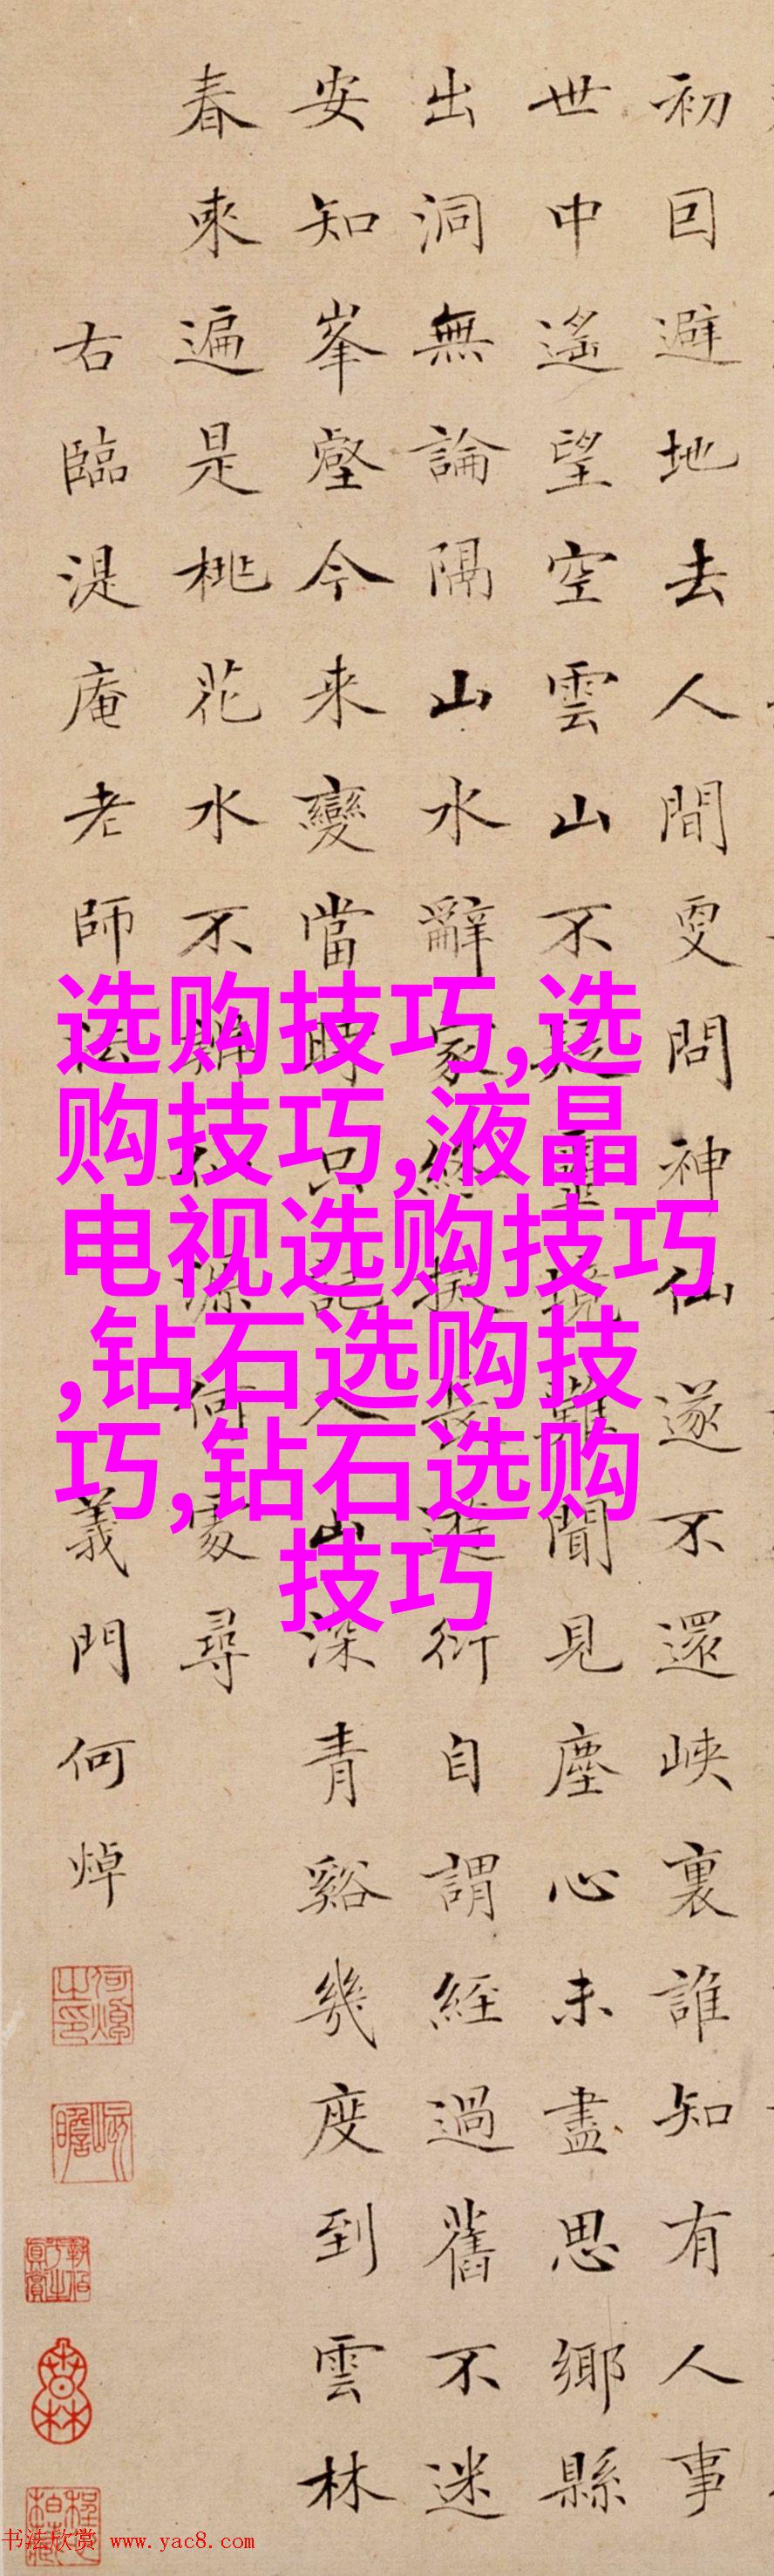 初回避地去人間更問神仙遂不還峽裏誰知有人事
世中遙望空雲山不疑靈境難聞見塵心未盡思鄉縣
出洞無論隔山水辭家終擬長遊衍自謂經過舊不迷
安知峯壑今来變當時只記入山深青谿幾度到雲林
春來遍是桃花水不辨仙源何處尋
右臨湜庵老師法
義門何焯
选购技巧,选
购技巧,液晶
电视选购技巧
,钻石选购技
巧,钻石选购
技巧
书法欣赏 www.yac8.com